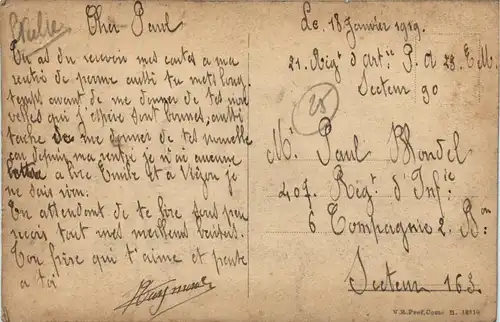 Cher Paul
Tu as du recevoir mes cartes a ma
rentré de perme aussi tu mets long
temps avant de me donner de tes nou
velles qui j'espère sont bonnes, aussi
tache de me donner de tes nouvelle
car depuis ma rentré je n'ai aucune
lettre a lire Emile et à je
ne sais rien.
En attendant de te lire sous peu
reçois tout mes meilleurs baisers.
Ton frère qui t'aime et pense
a toi
Raymond
Le. 18 Janvier 1919.
21. Régt d'art. P. a 23. E. M.
Secteur 90
25
Mr Paul Blondel
407. Régt d'Infie
6 Compagnie 2. Bon:
Secteur 163.